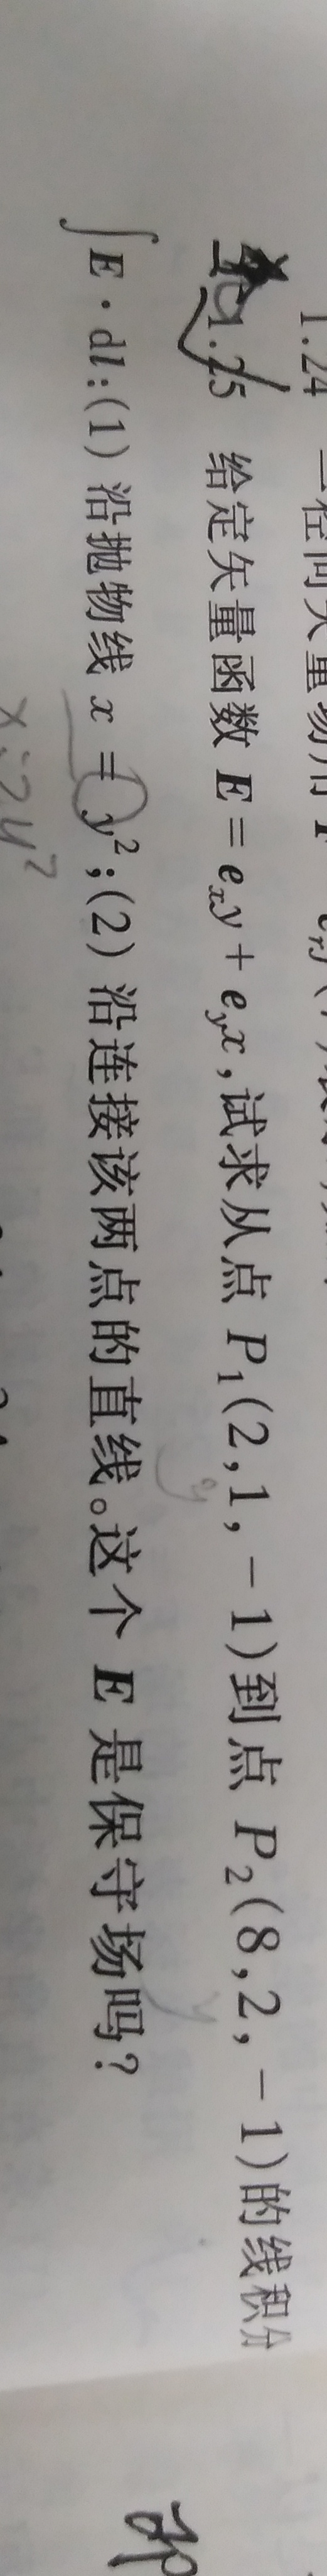 1.24 一径向矢量场用
1.25 给定矢量函数 E = eₓy + e_yx,试求从点 P₁(2,1,-1)到点 P₂(8,2,-1)的线积分
∫E·dl:(1)沿抛物线 x = y²;(2)沿连接该两点的直线。这个 E 是保守场吗?
x=2y²